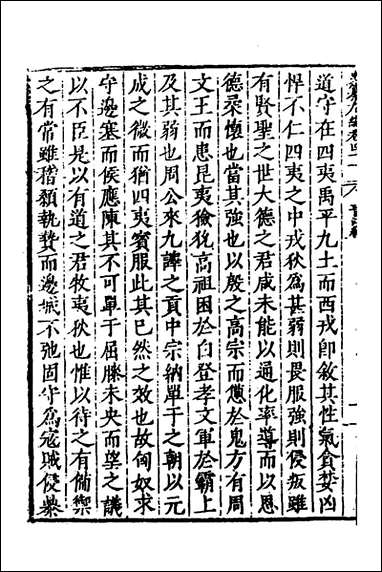 道守在四夷禹平九土而西戎卽敘其性氣貪婪凶
悍不仁四夷之中戎狄爲甚弱則畏服強則侵叛雖
有賢聖之世大德之君咸未能以通化率導而以恩
德柔懷也當其強也以殷之高宗而憊於鬼方有周
文王而患昆夷獫狁高祖困於白登孝文軍於霸上
及其弱也周公來九譯之貢中宗納單于之朝以元
成之微而猶四夷賓服此其已然之效也故匈奴求
守邊塞而侯應陳其不可單于屈膝未央而望之議
以不臣是以有道之君牧夷狄也惟以待之有備禦
之有常雖稽顙執贄而邊城不弛固守爲寇賊侵暴